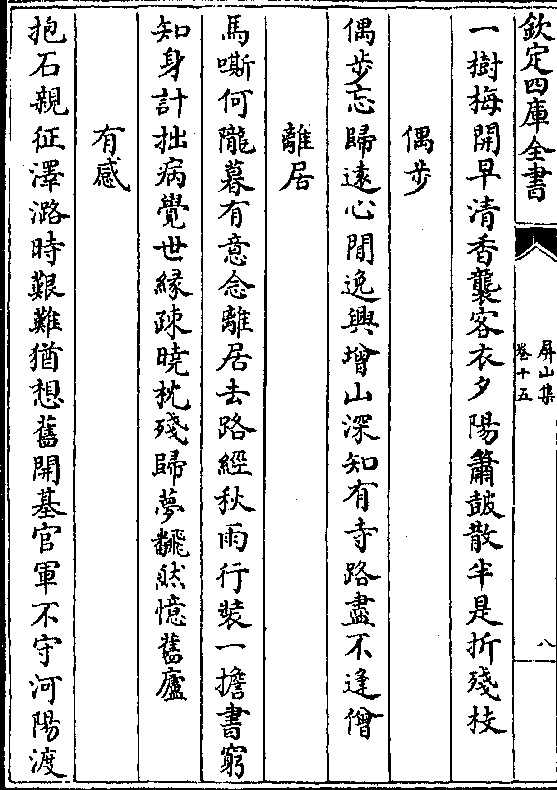 欽定四庫全書
屏山集
卷十五
八
一樹梅開早清香襲客衣夕陽簫鼓散半是折殘枝
偶步
偶步忘歸遠心閒逸興增山深知有寺路盡不逢僧
離居
馬嘶何隴暮有意念離居去路經秋雨行裝一擔書窮
知身計拙病覺世緣疎曉枕殘歸夢飜然憶舊廬
有感
抱石親征澤潞時艱難猶想舊開基官軍不守河陽渡